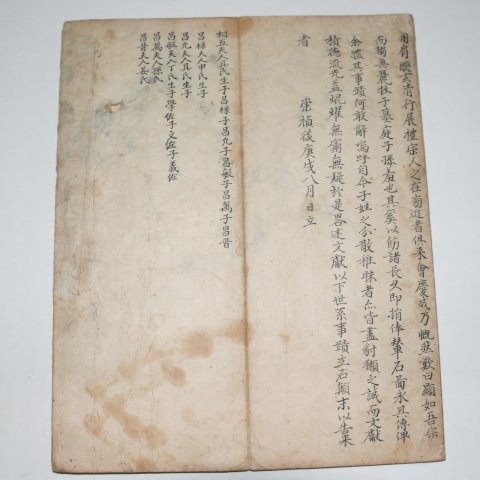 用肩輿亥青行展禮宗人之在旁近者俱來會慶成乃慨然歎曰顯如吾宗
而獨無麗牲子墓庭子孫羞也具奚以飭諸長久即捐俸輦石啚永具傳俾
余臚其事蹟何敢辭嗚呼自今子姓之分散椎隸者亦皆盡豺獺之誠而文獻
積德流光益焜耀無庸無疑於是畧述文獻以下世系事蹟立石顚末以告來
者
崇禎後庚戌八月日立
相五夫人具氏生子昌祿子昌允子昌敏子昌萬子昌晉
昌祿夫人申氏生子
昌允夫人具氏生子
昌敏夫人丁氏生子學佐子文佐子義佐
昌萬夫人孫氏
昌晉夫人姜氏